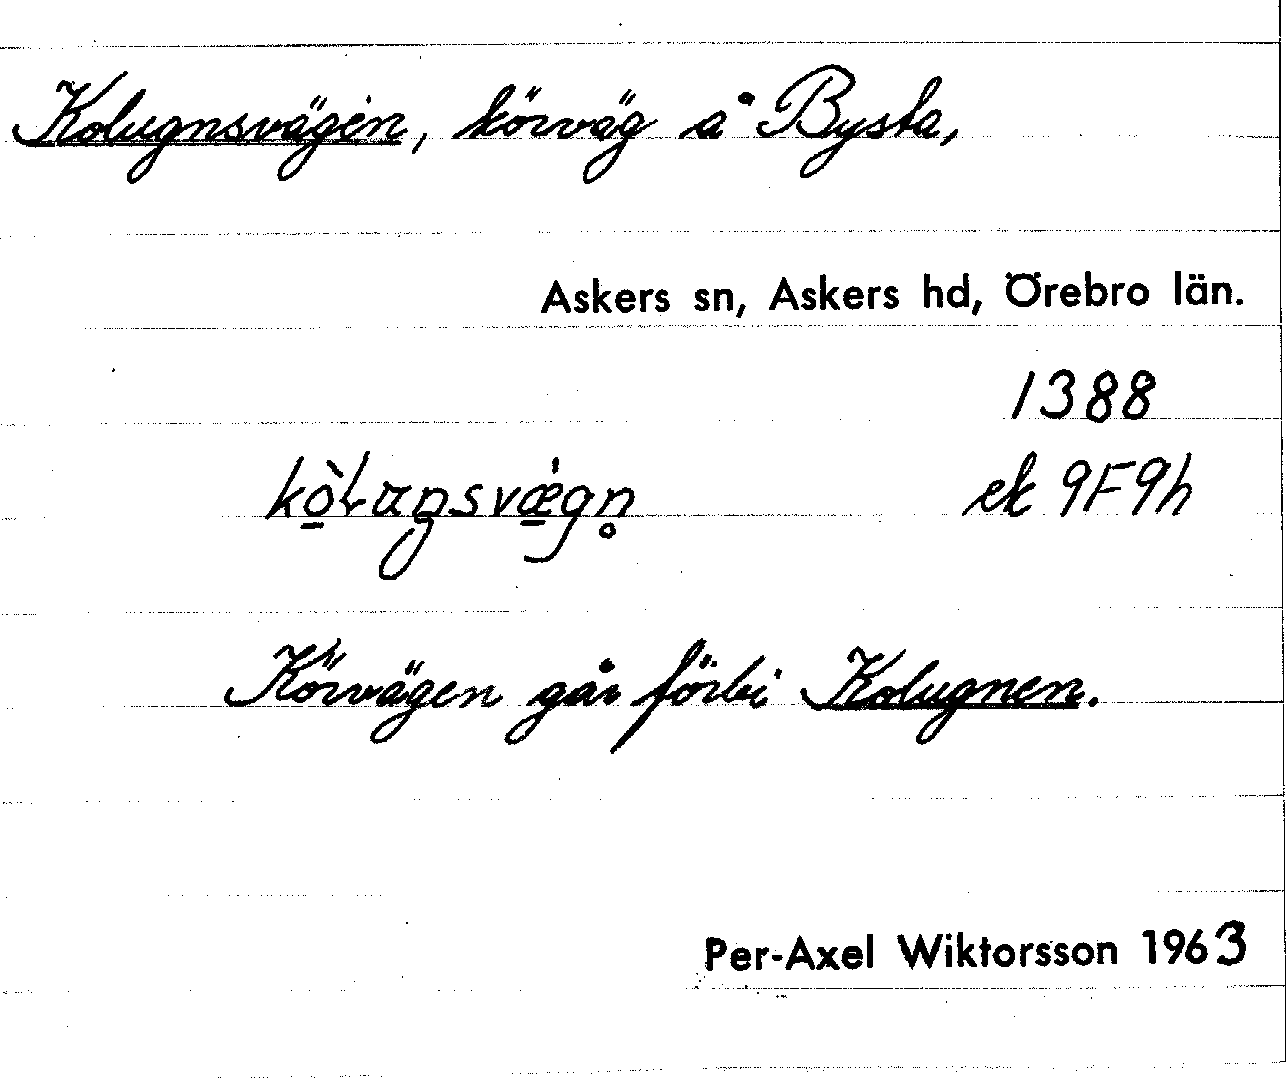 Kolugnsvägen, körväg å Bysta,
Askers sn, Askers hd, Örebro län.
1388
ek 9F9h
Körvägen går förbi Kolugnen.
Per-Axel Wiktorsson 1963